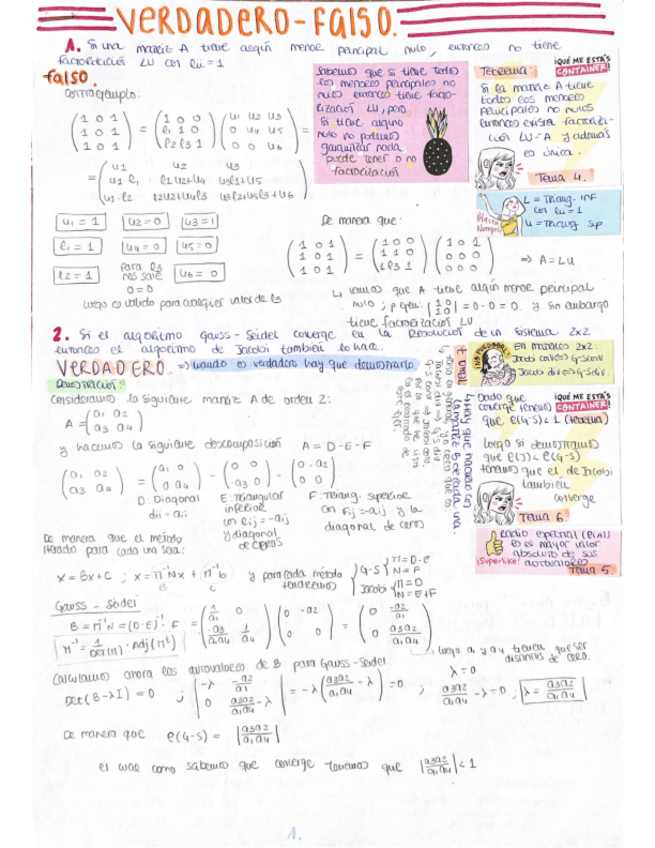 VERDADERO-FALSO.
1. Si una matriz A tiene algún menor principal nulo, entonces no tiene
factorización LU con lii = 1
FALSO.
Contraejemplo:
(1 0 1; 1 0 1; 1 0 1) = (1 0 0; l1 1 0; l2 l3 1) (u1 u2 u3; 0 u4 u5; 0 0 u6) =
= (u1 u2 u3; u1 l1 l1u2+u4 u3l1+u5; u1·l2 l2u2+u4l3 u3l2+u5l3+u6)
Sabemos que si tiene todos
los menores principales no
nulos entonces tiene facto-
rización LU, pero
si tiene alguno
nulo no podemos
garantizar nada
puede tener o no
factorización
Teorema:
¡QUÉ ME ESTÁS
CONTAINER!
Si la matriz A tiene
todos los menores
principales no nulos
entonces existe factoriza-
ción LU=A y además
es única.
Tema 4.
L = Triang. inf
con lii = 1
U = Triang sup.
u1 = 1
u2 = 0
u3 = 1
l1 = 1
u4 = 0
u5 = 0
l2 = 1
para l3
nos sale
0=0
u6 = 0
Luego es válido para cualquier valor de l3
De manera que:
(1 0 1; 1 0 1; 1 0 1) = (1 0 0; 1 1 0; 1 l3 1) (1 0 1; 0 0 0; 0 0 0) ⇒ A = LU
↳ vemos que A tiene algún menor principal
nulo; p.ejem: |1 0; 1 0| = 0-0 = 0. y sin embargo
tiene factorización LU
2. Si el algoritmo Gauss-Seidel converge en la resolución de un sistema 2x2
entonces el algoritmo de Jacobi también lo hace.
VERDADERO. ⇒ cuando es verdadero hay que demostrarlo
Demostración:
Consideramos la siguiente matriz A de orden 2:
A = (a1 a2; a3 a4)
y hacemos la siguiente descomposición A = D-E-F
(a1 a2; a3 a4) = (a1 0; 0 a4) - (0 0; -a3 0) - (0 -a2; 0 0)
D: Diagonal
dii = aii
E: Triangular
inferior
con eij = -aij
y diagonal
de CEROS
F: Triang. superior
con Fij = -aij y la
diagonal de ceros
En matrices 2x2.
Jacobi conv ⇔ G-S conv
Jacobi div ⇔ G-S div
Dado que
¡QUÉ ME ESTÁS
CONTAINER!
converge tenemos
que ρ(G-S) < 1 (teorema)
Luego si demostramos
que ρ(J) < ρ(G-S)
tenemos que el de Jacobi
también
converge
Tema 6.
Radio espectral (ρ(A))
es el mayor valor
absoluto de sus
autovalores
¡Superlike!
Tema 5
De manera que el método
iterado para cada una sea:
x = Bx + C ; x = M⁻¹Nx + M⁻¹b
B
C
y para cada método
tendremos
G-S { M = D-E
N = F
Jacobi { M = D
N = E+F
Gauss - Seidel
B = M⁻¹N = (D-E)⁻¹·F = (1/a1 0; -a3/a1a4 1/a4) (0 -a2; 0 0) = (0 -a2/a1; 0 a3a2/a1a4)
M⁻¹ = 1/Det(M) · Adj(Mᵗ)
↳ luego a1 y a4 tienen que ser
distintos de cero.
Calculamos ahora los autovalores de B para Gauss-Seidel
Det(B-λI) = 0 ; |-λ -a2/a1; 0 a3a2/a1a4 -λ| = -λ(a3a2/a1a4 - λ) = 0 ;
λ = 0
a3a2/a1a4 - λ = 0 ; λ = a3a2/a1a4
De manera que ρ(G-S) = |a3a2/a1a4|
el cual como sabemos que converge tenemos que |a3a2/a1a4| < 1
1.